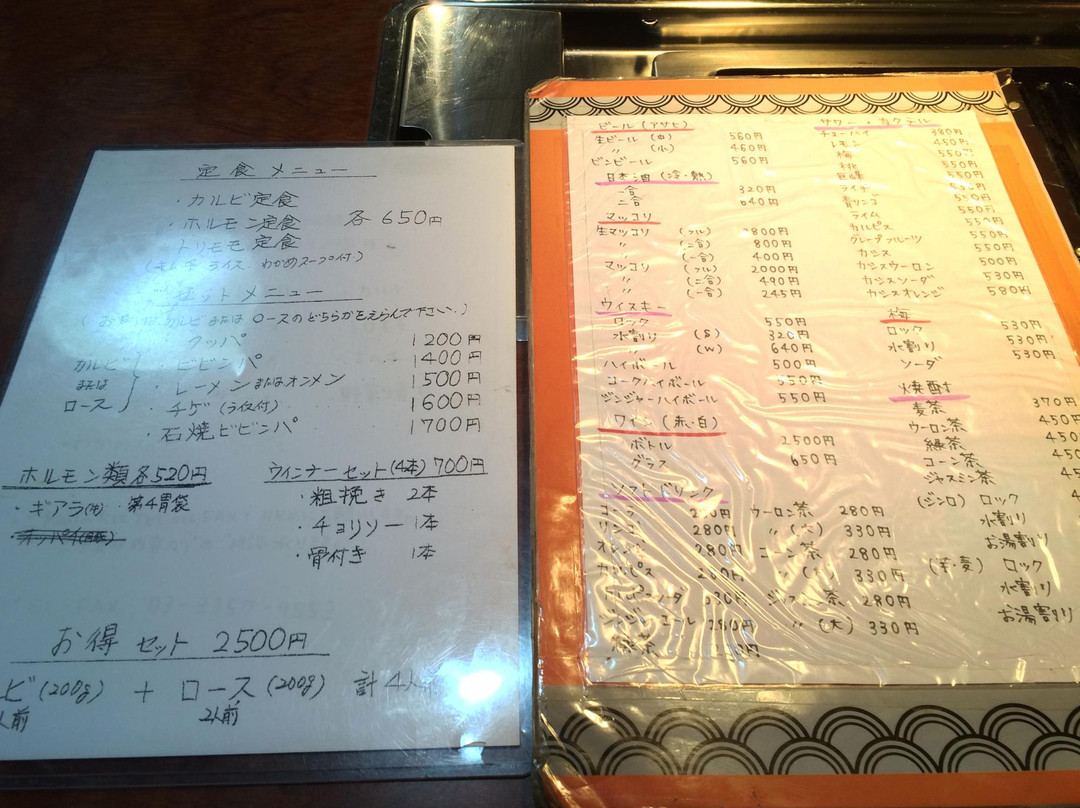 定食メニュー
・カルビ定食
・ホルモン定食 各650円
・トリモモ定食
(キムチ・ライス・わかめスープ付)
セットメニュー
(お肉は、カルビまたはロースのどちらかをえらんで下さい。)
カルビ または ロース
・クッパ 1200円
・ビビンバ 1400円
・レーメンまたはオンメン 1500円
・チゲ(ライス付) 1600円
・石焼ビビンバ 1700円
ホルモン類各520円
・ギアラ(牛) 第4胃袋
ウインナーセット(4本)700円
・粗挽き 2本
・チョリソー 1本
・骨付き 1本
お得セット 2500円
ビ(200g) + ロース(200g) 計4人
人前 2人前
ビール(アサヒ)
生ビール(中) 560円
〃 (小) 460円
ビンビール 560円
日本酒(冷・熱)
一合 320円
二合 640円
マッコリ
生マッコリ (フル) 2800円
〃 (二合) 800円
〃 (一合) 400円
マッコリ (フル) 2000円
〃 (二合) 490円
〃 (一合) 245円
ウイスキー
ロック 550円
水割り (S) 320円
〃 (W) 640円
ハイボール 500円
コークハイボール 550円
ジンジャーハイボール 550円
ワイン(赤・白)
ボトル 2500円
グラス 650円
ソフトドリンク
コーラ 280円
リンゴ 280円
オレンジ 280円
カルピス 280円
カルピスソーダ 330円
ジンジャエール 280円
緑茶
ウーロン茶 280円
〃 (大) 330円
コーン茶 280円
〃 (大) 330円
ジャスミン茶 280円
〃 (大) 330円
サワー・カクテル
チューハイ 380円
レモン 450円
梅 550円
桃 550円
巨峰 550円
ライチ 550円
青リンゴ 550円
ライム 550円
カルピス 550円
グレープフルーツ 550円
カシス 550円
カシスウーロン 500円
カシスソーダ 530円
カシスオレンジ 580円
梅
ロック 530円
水割り 530円
ソーダ 530円
焼酎
麦茶 370円
ウーロン茶 450円
緑茶 450
コーン茶 450
ジャスミン茶 450
(ジンロ) ロック
水割り
お湯割り
(芋・麦) ロック
水割り
お湯割り